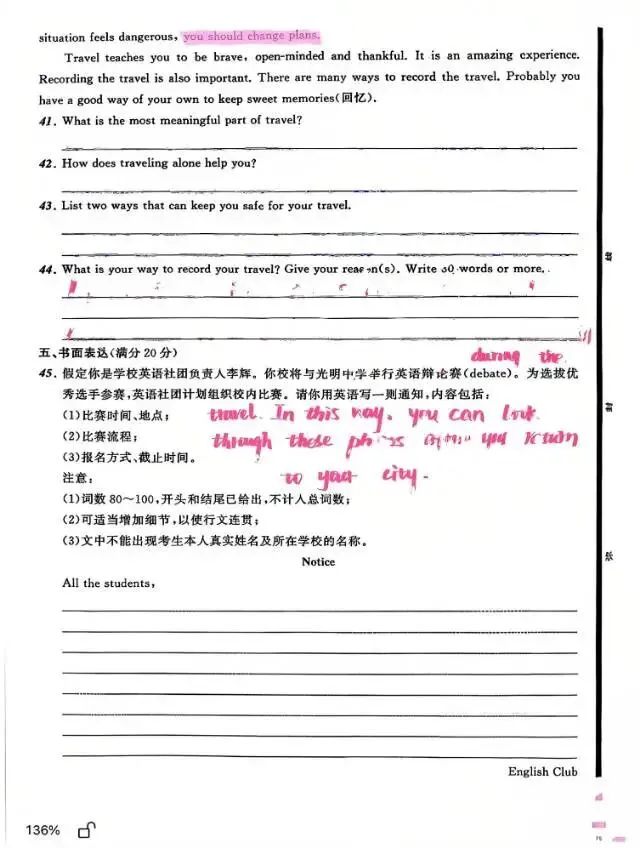 situation feels dangerous, you should change plans.
Travel teaches you to be brave, open-minded and thankful. It is an amazing experience.
Recording the travel is also important. There are many ways to record the travel. Probably you
have a good way of your own to keep sweet memories(回忆).
41. What is the most meaningful part of travel?
42. How does traveling alone help you?
43. List two ways that can keep you safe for your travel.
44. What is your way to record your travel? Give your reason(s). Write words or more.
五、书面表达(满分20分)
during the
45. 假定你是学校英语社团负责人李辉。你校将与光明中学举行英语辩论赛(debate)。为选拔优
秀选手参赛,英语社团计划组织校内比赛。请你用英语写一则通知,内容包括:
(1)比赛时间、地点;
travel. In this way, you can look
(2)比赛流程;
through these you return
(3)报名方式、截止时间。
to your city.
注意:
(1)词数80~100,开头和结尾已给出,不计入总词数;
(2)可适当增加细节,以使行文连贯;
(3)文中不能出现考生本人真实姓名及所在学校的名称。
Notice
All the students,
English Club
136%